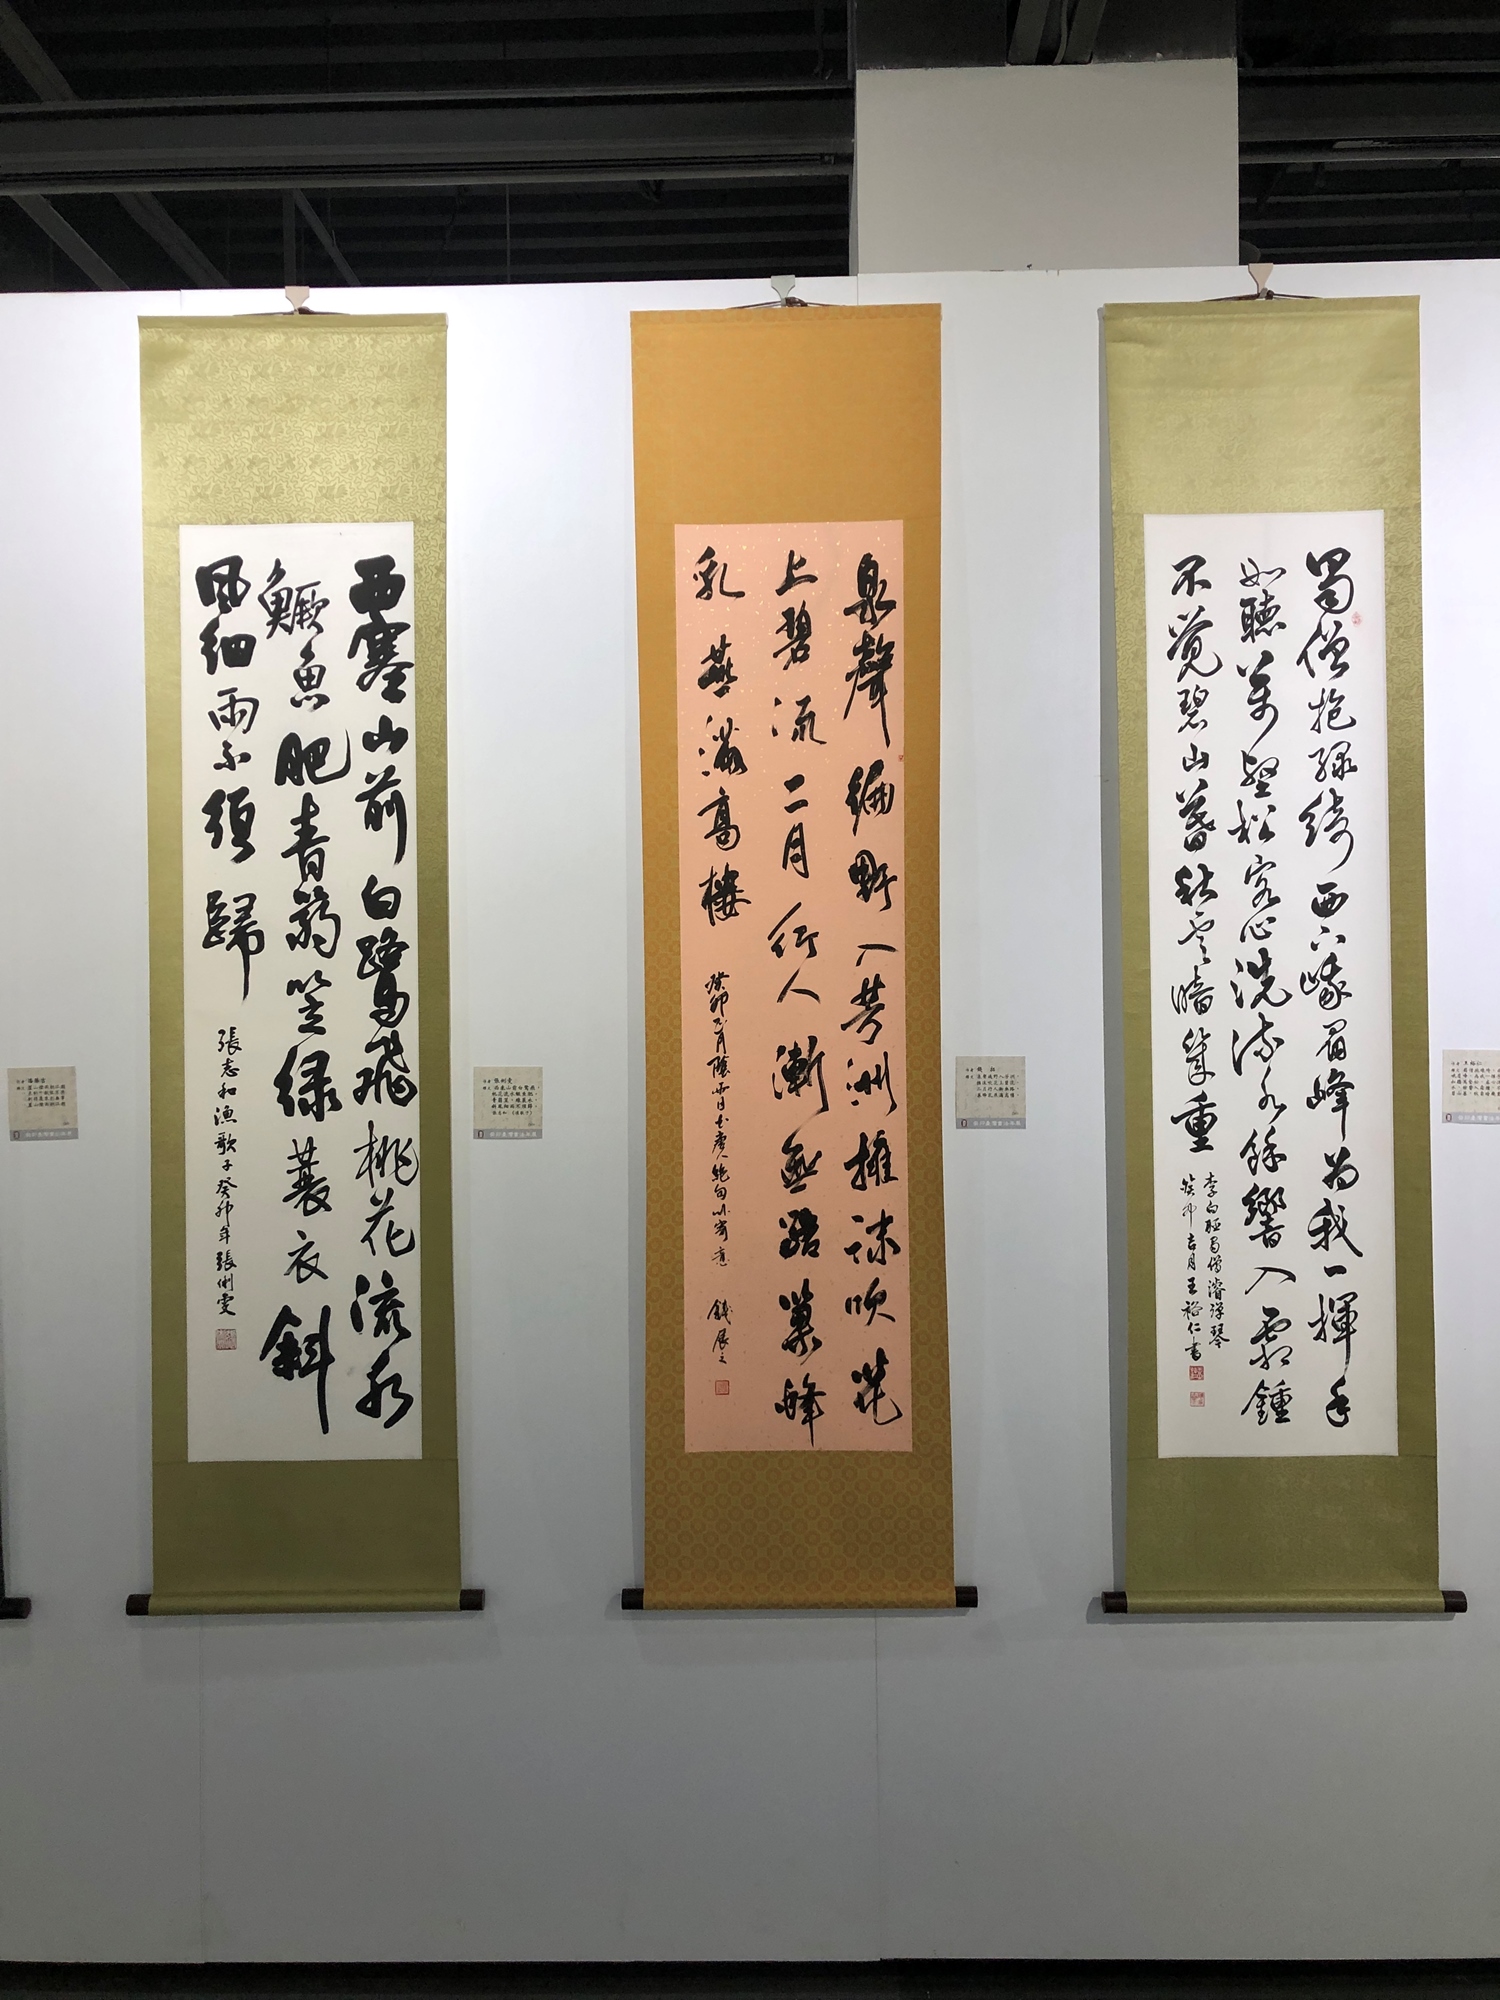 西塞山前白鷺飛桃花流水
鱖魚肥青箬笠綠蓑衣斜
風細雨不須歸
張志和漁歌子癸卯年張俐雯
泉聲遍野入芳洲擁沫吹花
上碧流二月行人漸無路巢蜂
乳燕滿高樓
癸卯正月陰雨日書唐人絕句以寄意 錢展之
蜀僧抱綠綺西下峨眉峰為我一揮手
如聽萬壑松客心洗流水餘響入霜鍾
不覺碧山暮秋雲暗幾重
李白聽蜀僧濬彈琴
癸卯吉月王裕仁書